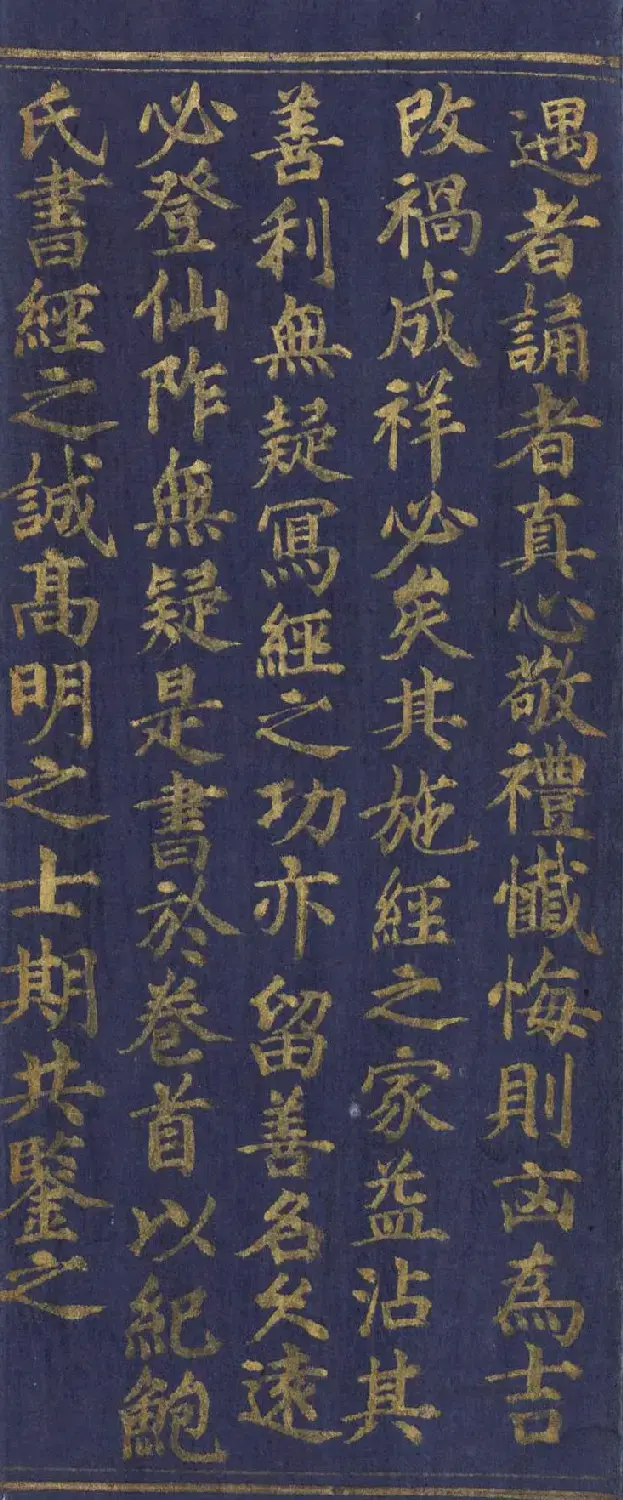 遇者誦者真心敬禮懺悔則凶為吉
改禍成祥必矣其施經之家益沾其
善利無疑寫經之功亦留善名久遠
必登仙阼無疑是書於卷首以紀鮑
氏書經之誠髙明之士期共鑒之